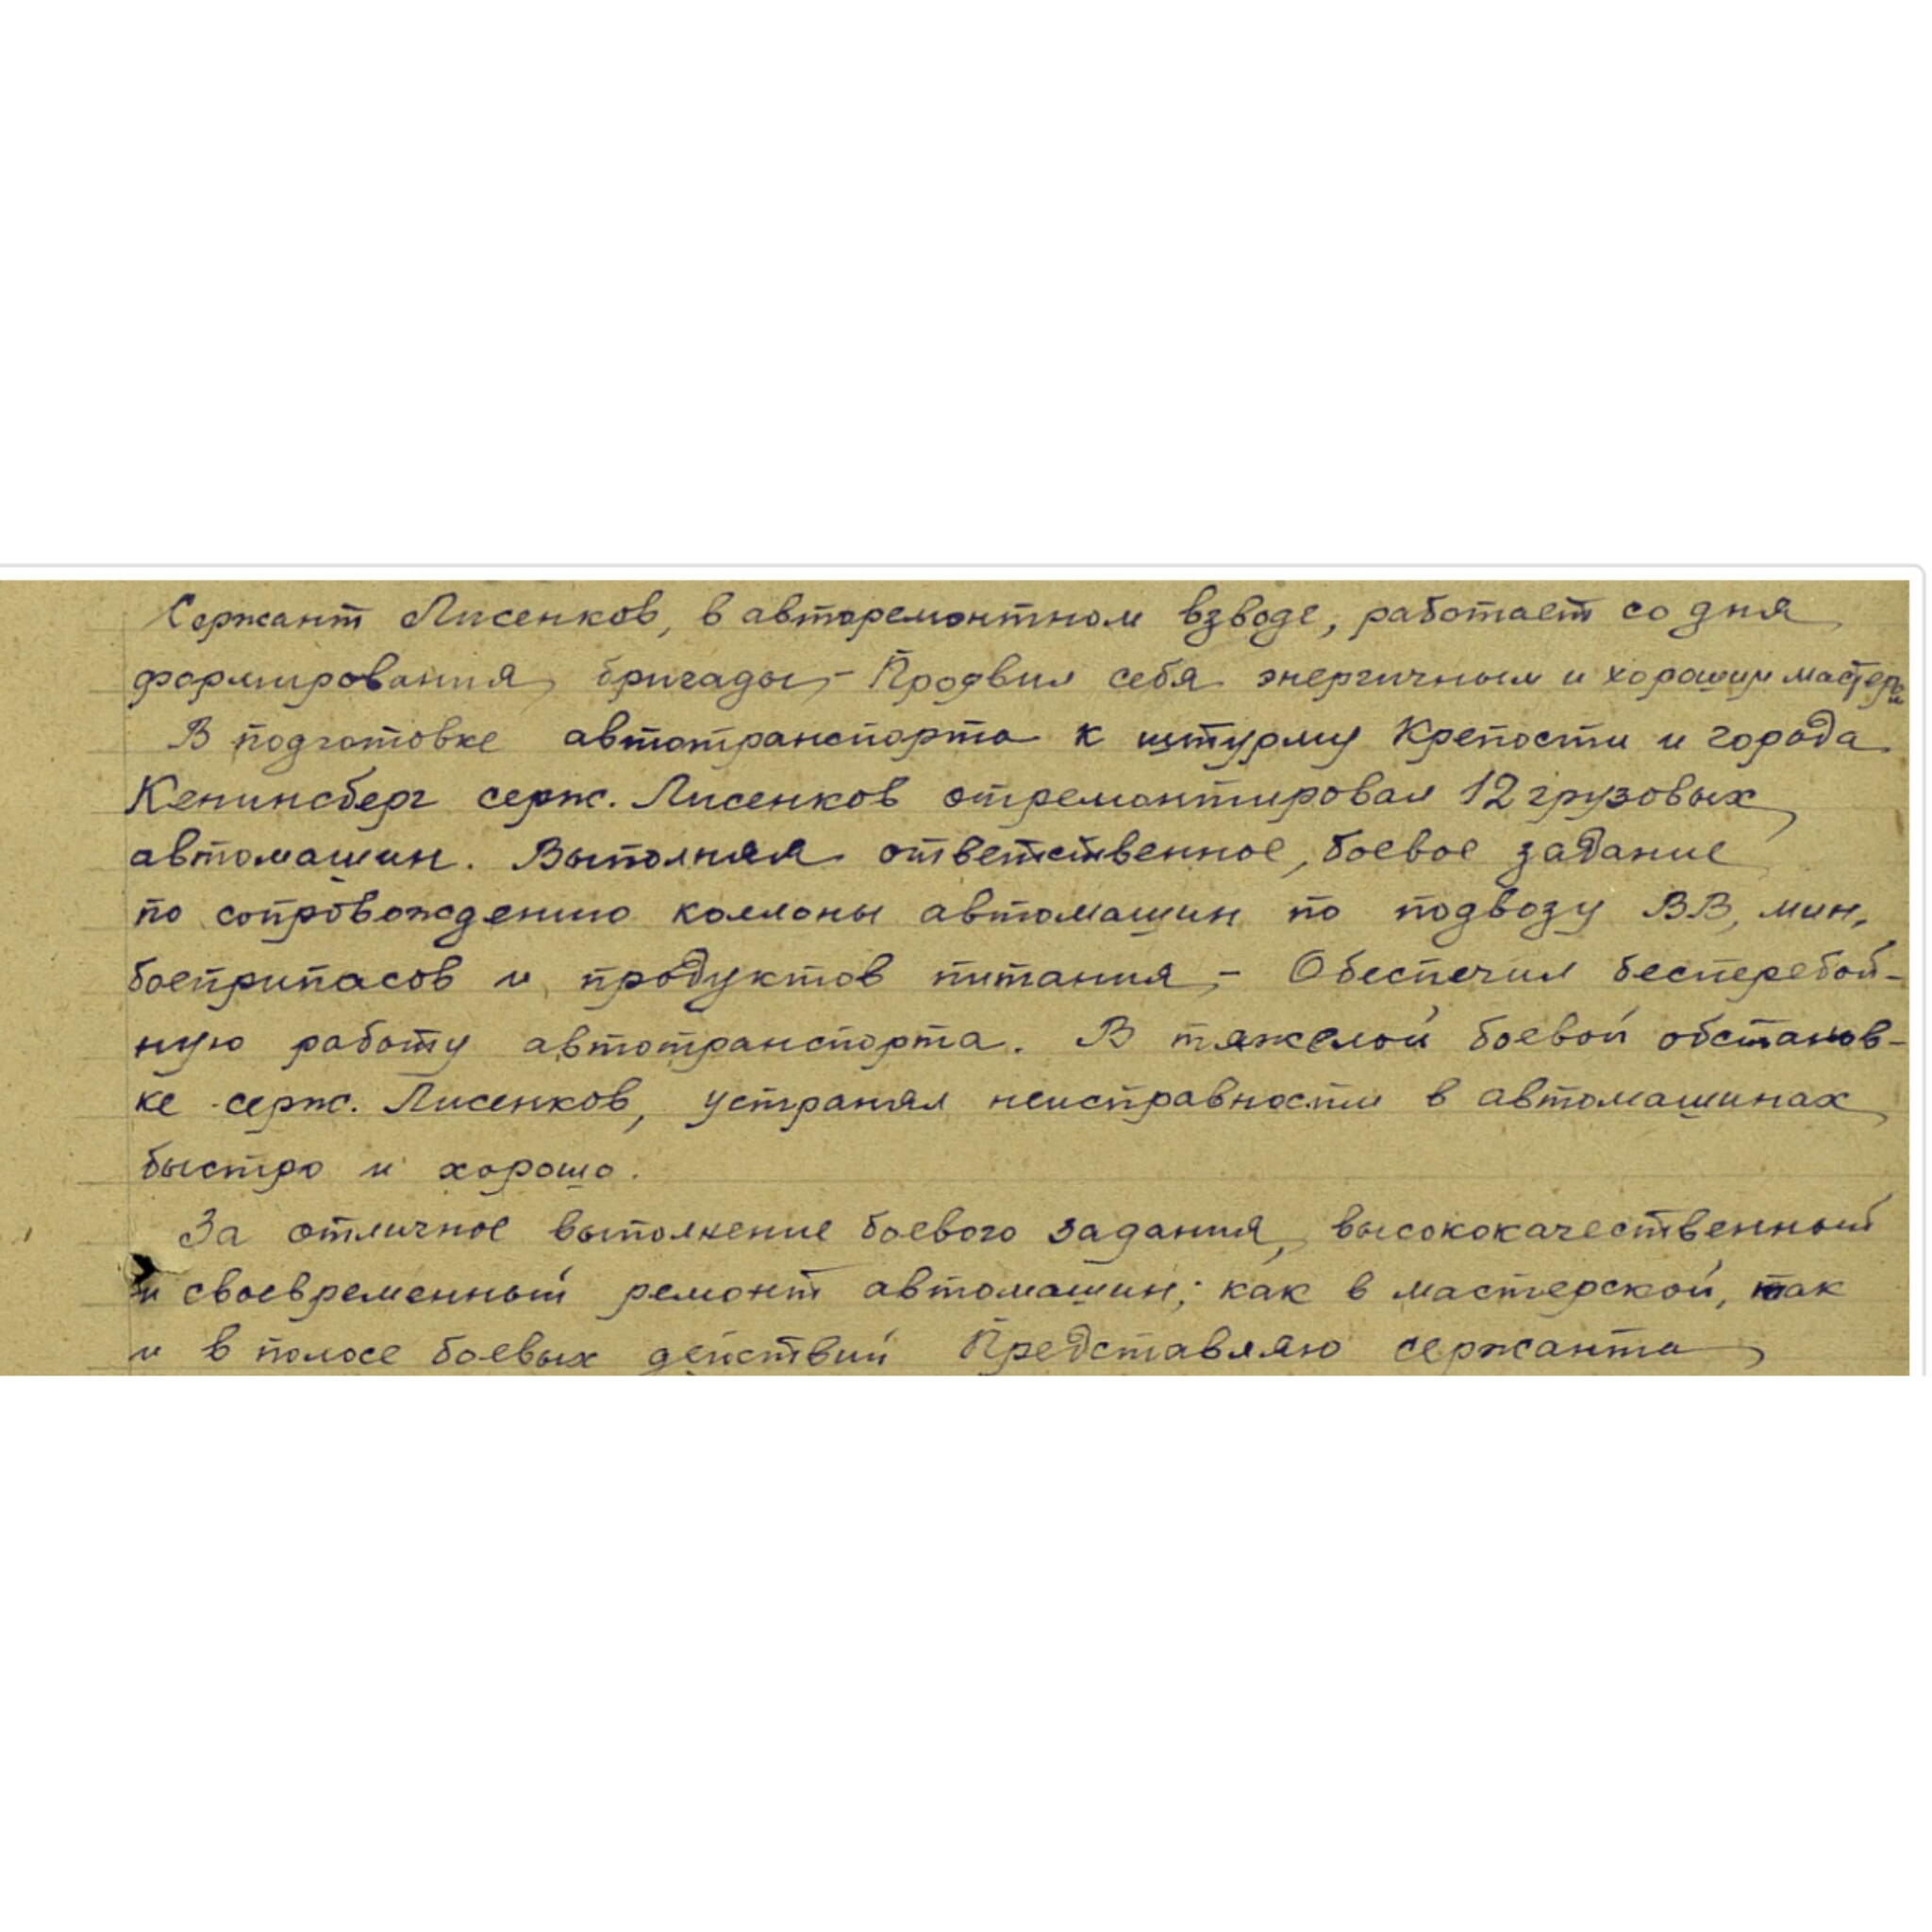 Сержант Лисенков, в авторемонтном взводе, работает со дня
формирования бригады, - Проявил себя энергичным и хорошим мастером
В подготовке автотранспорта к штурму Крепости и города
Кенинсберг серж. Лисенков отремонтировал 12 грузовых
автомашин. Выполняя ответственное, боевое задание
по сопровождению коллоны автомашин по подвозу ВВ, мин,
боеприпасов и продуктов питания, - Обеспечил бесперебой-
ную работу автотранспорта. В тяжелой боевой обстанов-
ке серж. Лисенков, устранял неисправности в автомашинах
быстро и хорошо.
За отличное выполнение боевого задания, высококачественный
и своевременный ремонт автомашин; как в мастерской, так
и в полосе боевых действий Представляю сержанта